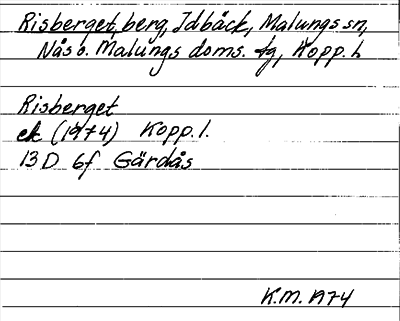 Risberget, berg, Idbäck, Malungs sn,
Nås o. Malungs doms. tg, Kopp. l.
Risberget
ek (1974) Kopp. l.
13 D 6f Gärdås
K.M. 1974